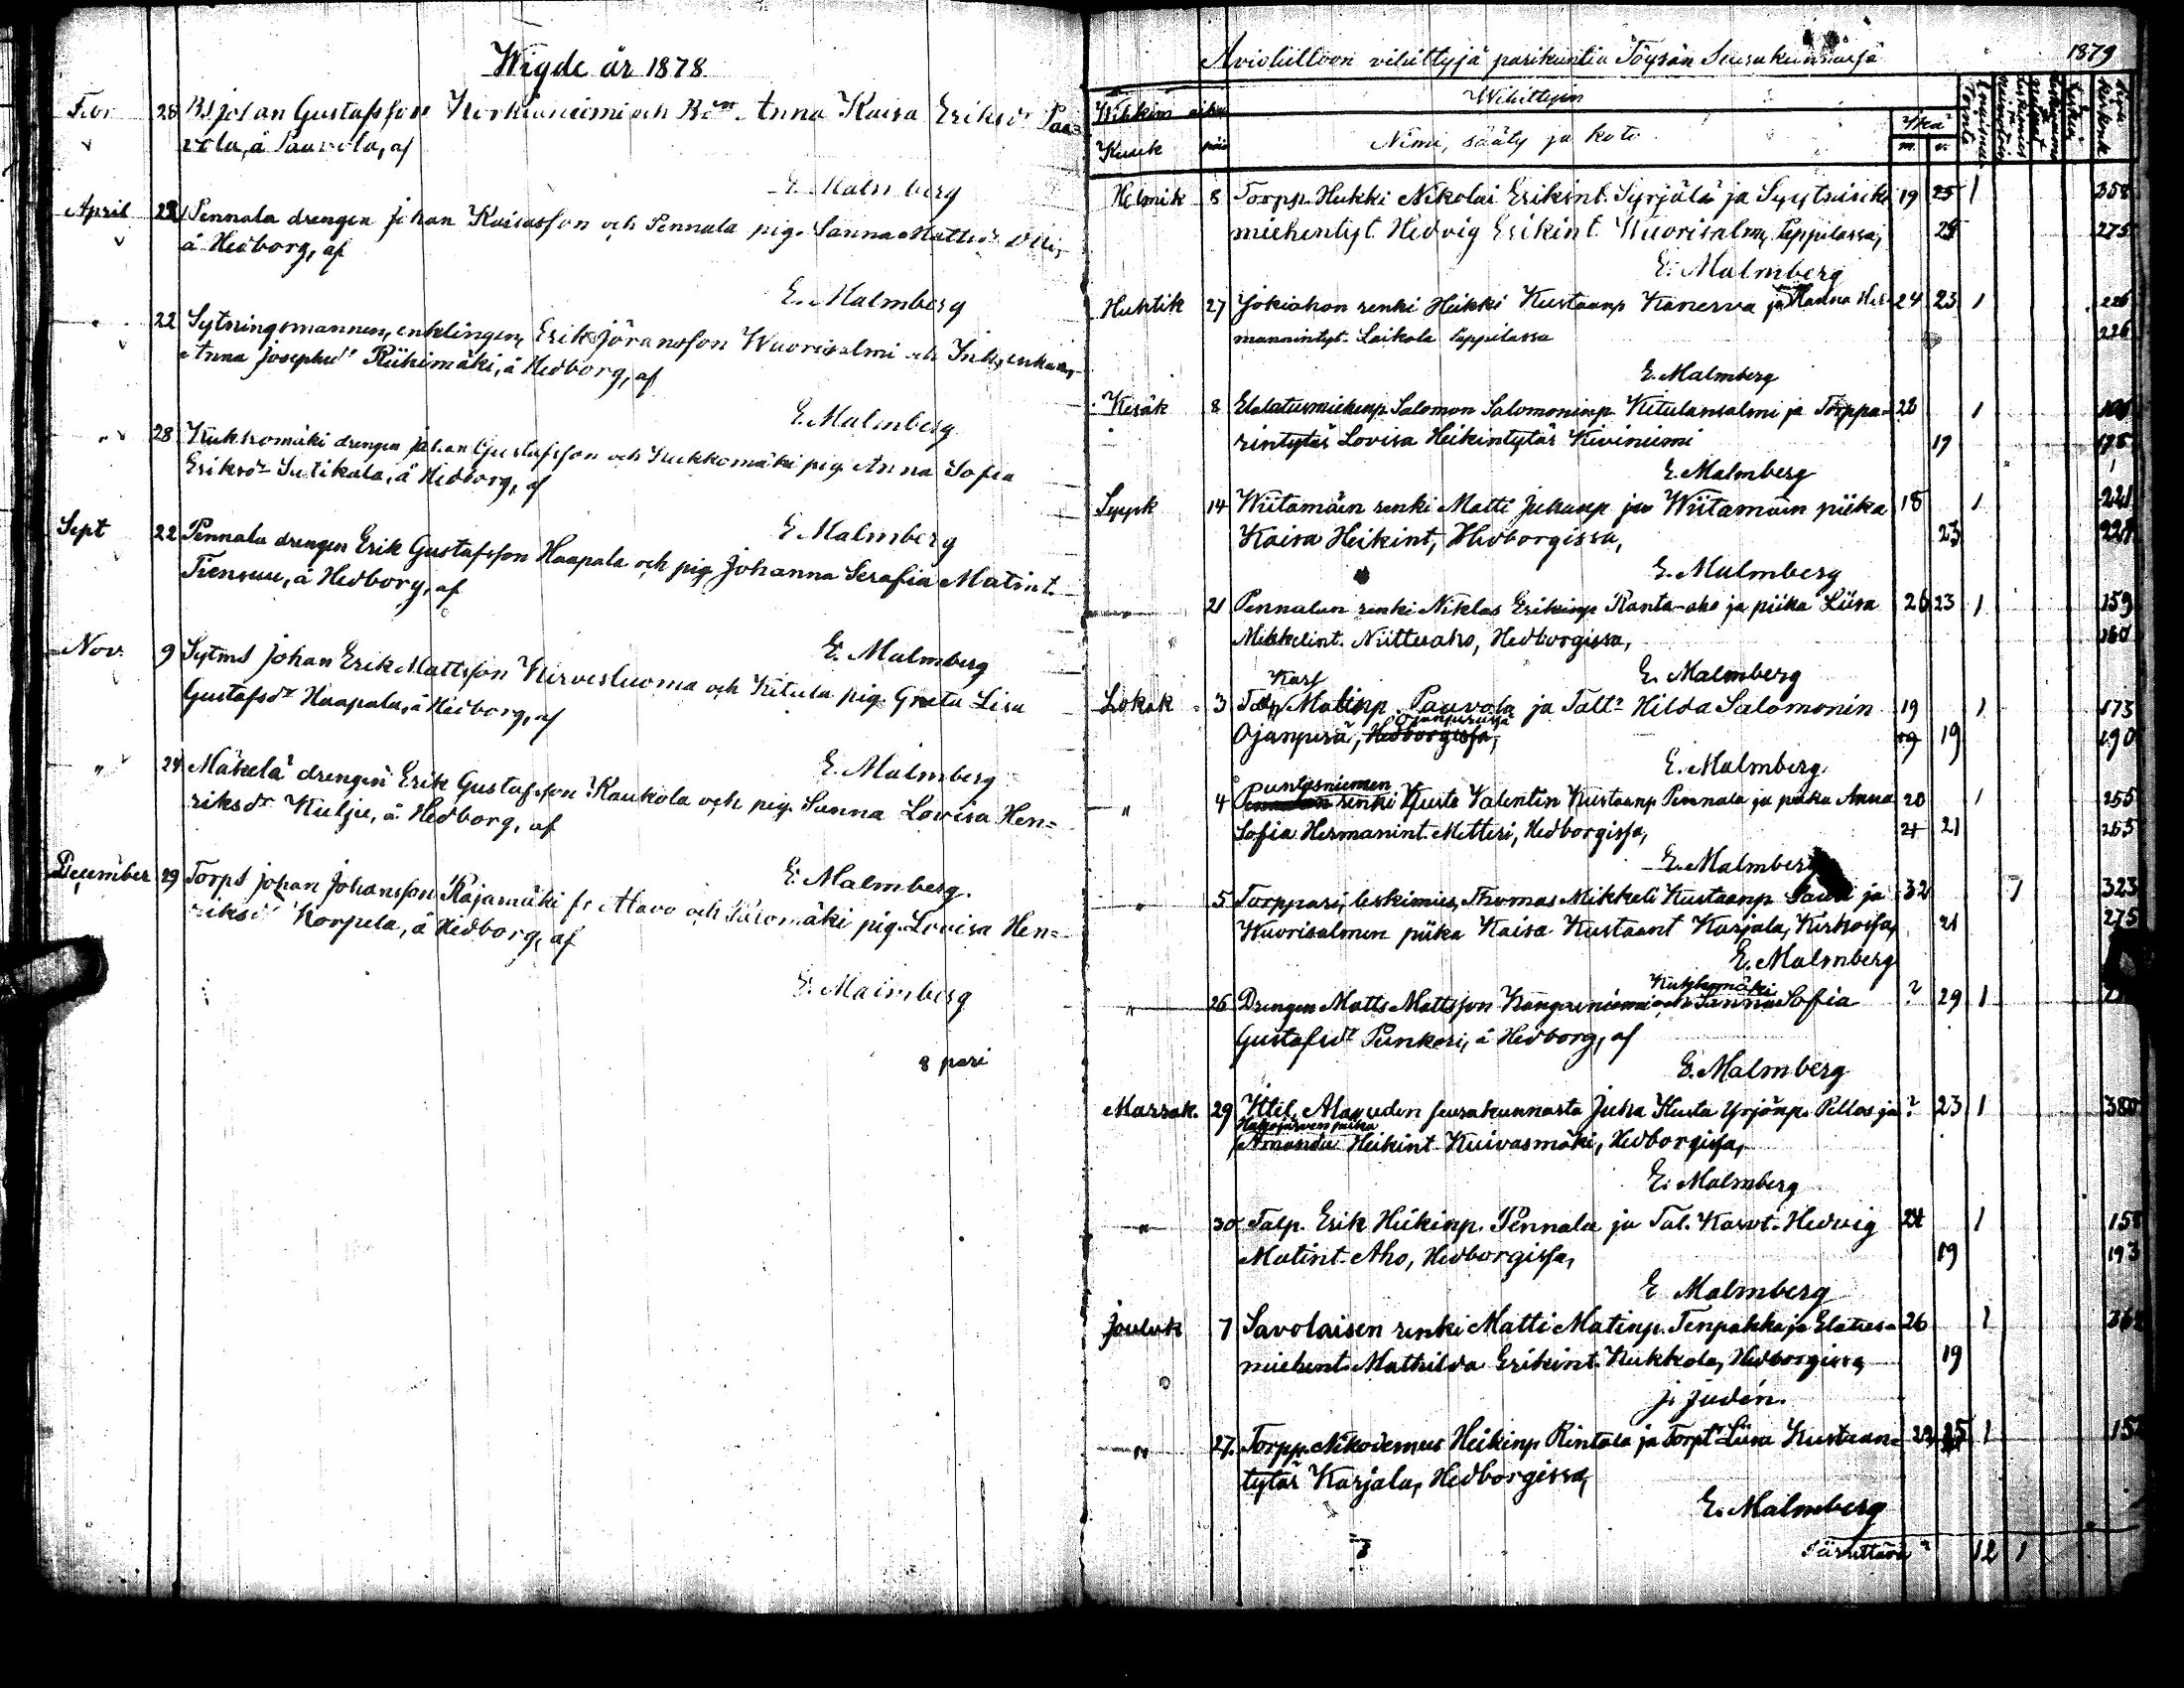 Wigde år 1878
Febr 28 Bs Johan Gustafsson Korkianiemi och Bdr Anna Kaisa Eriksdr Paa-
vola, å Pauvola, af
E. Malmberg
April 22 Pennala drengen Johan Kaisasson och Pennala pig. Sanna Mattsdr
å Hedborg, af
E. Malmberg
" 22 Sytningsmannen, enklingen, Erik Göransson Wuorisalmi och Inh, enkan,
Anna Josephsdr Riikimäki, å Hedborg, af
E. Malmberg
" 28 Kukkomäki drengen Johan Gustafsson och Kukkomäki pig. Anna Sofia
Eriksdr Sutikala, å Hedborg, af
E. Malmberg
Sept 22 Pennala drengen Erik Gustafsson Haapala och pig Johanna Serafia Matint.
å Hedborg, af
E. Malmberg
Nov. 9 Sytms Johan Erik Mattsson Kirvesluoma och Kitula pig. Greta Lisa
Gustafsdr Haapala, å Hedborg, af
E. Malmberg
" 24 Mäkelä drengen Erik Gustafsson Kaukola och pig. Sanna Lovisa Hen=
riksdr Kulju, å Hedborg, af
E. Malmberg.
December 29 Torps Johan Johansson Rajamäki fr Alavo och Salomäki pig. Lovisa Hen=
riksdr Korpela, å Hedborg, af
E. Malmberg
8 pari
Avioliittoon vihittyjä parikuntia Töysän Seurakunnassa 1879
Wihkim. aika Wihittyin
Kuuk. päiv. Nimi, sääty ja koto Ikä m. v.
Helmik 8 Torpp. Heikki Nikolai Erikint. Syrjälä ja Syytnink 19 25 1 358
miehentyt. Hedvig Erikint. Wuorisalmi, Peppilassa, 24 275
E. Malmberg
Huhtik 27 Jokiahon renki Heikki Kustaanp Kanerva ja Hanna Her- 24 23 1 226
mannintyt. Laikola Peppilassa 226
E. Malmberg
Kesäk 8 Elatusmiehenp. Salomon Salomoninp Kitulansalmi ja Torppa- 28 1
rintytär Lovisa Heikintytär Kiviniemi 19
E. Malmberg
Syysk 14 Wiitamäen renki Matti Juhanp ja Wiitamäen piika 18 1 221
Kaisa Heikint, Hedborgissa, 23
E. Malmberg
" 21 Pennalan renki Niklas Erikinp Ranta-aho ja piika Liisa 26 23 1 159
Mikkelint. Niittuaho, Hedborgissa, 160
E. Malmberg
Karl
Lokak 3 Talp Matinp. Pauvola ja Talt. Hilda Salomonin 19 1 173
Ojanperässä
Ojanperä, Hedborgissa, 19 19 190
E. Malmberg.
Puntosniemen
" 4 Pennalan renki Kusta Valentin Kustaanp Pennala ja piika Anna 20 1 255
Sofia Hermanint. Metteri, Hedborgissa, 21 21 265
E. Malmberg
" 5 Torppari, leskimies, Thomas Mikkeli Kustaanp Sauna ja 32 1 323
Wuorisalmen piika Kaisa Kustaant Karjala, Kirkossa, 21 275
E. Malmberg
Kukkomäki
" 26 Drengen Matts Mattsson Kangasniemi och Sanna Sofia ? 29 1
Gustafsdr Punkari, å Hedborg, af
E. Malmberg
Marrask. 29 Itel. Alavuden seurakunnasta Juha Kusta Yrjönp. Pellas ja ? 23 1 380
Hakojärven piika
Amanda Heikint Kuivasmäki, Hedborgissa,
E. Malmberg
" 30 Talp. Erik Heikinp. Pennala ja Tal. Kasvt. Hedvig 24 1 158
Matint. Aho, Hedborgissa, 19 193
E. Malmberg
Jouluk 7 Savolaisen renki Matti Matinp. Tenpakka ja Elatus- 26 1
miehent. Mathilda Erikint. Kukkola, Hedborgissa 19
J. Judén.
" 27. Torpp. Nikodemus Heikinp Rintala ja Torpt. Liisa Kustaan= 22 25 1
tytär Karjala, Hedborgissa,
E. Malmberg
Siirrettävä 12 1